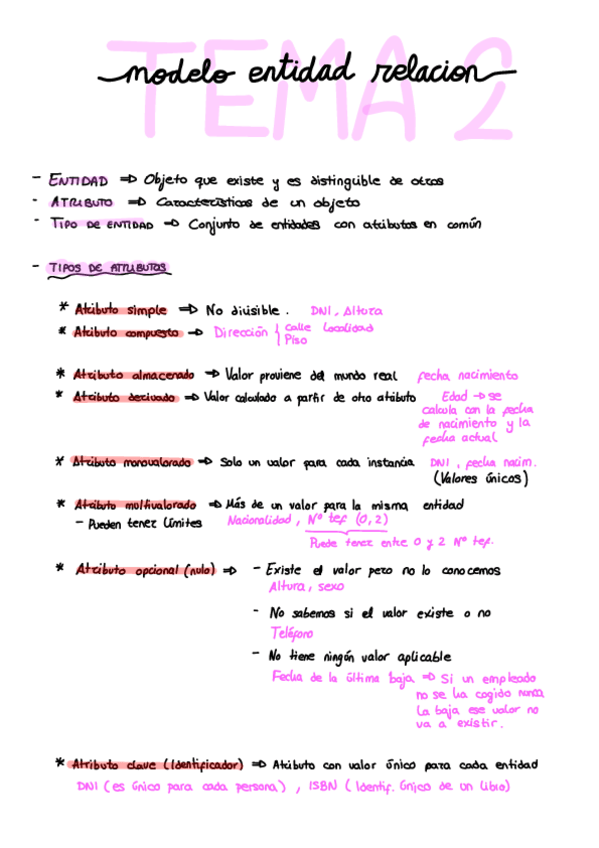 TEMA 2
modelo entidad relacion
- ENTIDAD => Objeto que existe y es distinguible de otros
- ATRIBUTO => Características de un objeto
- TIPO DE ENTIDAD => Conjunto de entidades con atributos en común
- TIPOS DE ATRIBUTOS
* Atributo simple => No divisible. DNI, Altura
* Atributo compuesto => Dirección { calle localidad
Piso
* Atributo almacenado => Valor proviene del mundo real fecha nacimiento
* Atributo derivado => Valor calculado a partir de otro atributo Edad -> se
calcula con la fecha
de nacimiento y la
fecha actual
* Atributo monovalorado => Solo un valor para cada instancia DNI, fecha nacim.
(Valores únicos)
* Atributo multivalorado => Más de un valor para la misma entidad
- Pueden tener límites Nacionalidad, Nº tef (0,2)
Puede tener entre 0 y 2 Nº tef.
* Atributo opcional (nulo) => - Existe el valor pero no lo conocemos
Altura, sexo
- No sabemos si el valor existe o no
Teléfono
- No tiene ningún valor aplicable
Fecha de la última baja => Si un empleado
no se ha cogido nunca
la baja ese valor no
va a existir.
* Atributo clave (Identificador) => Atributo con valor único para cada entidad
DNI (es único para cada persona), ISBN (Identif. único de un libro)